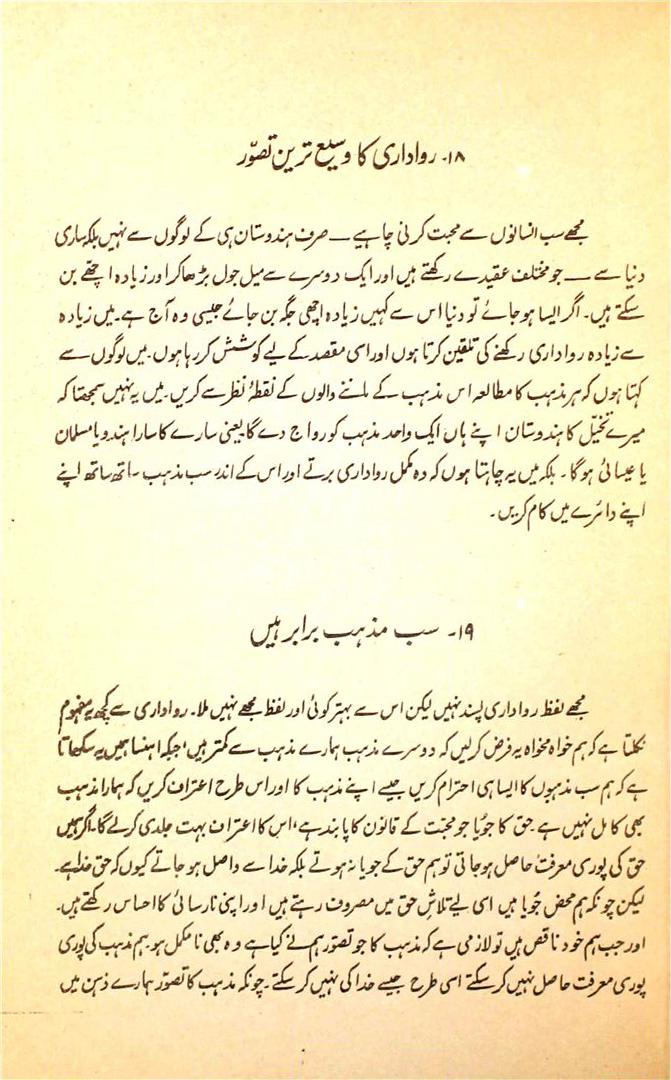 ۱۸۔ رواداری کا وسیع ترین تصوّر
مجھے سب انسانوں سے محبت کرنی چاہیے ــــ صرف ہندوستان ہی کے لوگوں سے نہیں بلکہ ساری
دنیا سے ــــ جو مختلف عقیدے رکھتے ہیں اور ایک دوسرے سے میل جول بڑھا کر اور زیادہ اچھے بن
سکتے ہیں۔ اگر ایسا ہو جائے تو دنیا اس سے کہیں زیادہ اچھی جگہ بن جائے جیسی وہ آج ہے۔ میں زیادہ
سے زیادہ رواداری رکھنے کی تلقین کرتا ہوں اور اسی مقصد کے لیے کوشش کر رہا ہوں۔ میں لوگوں سے
کہتا ہوں کہ ہر مذہب کا مطالعہ اس مذہب کے ماننے والوں کے نقطۂ نظر سے کریں۔ میں یہ نہیں سمجھتا کہ
میرے تخیّل کا ہندوستان اپنے ہاں ایک واحد مذہب کو رواج دے گا یعنی سارے کا سارا ہندو یا مسلمان
یا عیسائی ہو گا۔ بلکہ میں یہ چاہتا ہوں کہ وہ مکمل رواداری برتے اور اس کے اندر سب مذہب ساتھ ساتھ اپنے
اپنے دائرے میں کام کریں۔
۱۹۔ سب مذہب برابر ہیں
مجھے لفظ رواداری پسند نہیں لیکن اس سے بہتر کوئی اور لفظ مجھے نہیں ملا۔ رواداری سے کچھ یہ مفہوم
نکلتا ہے کہ ہم خواہ مخواہ یہ فرض کر لیں کہ دوسرے مذہب ہمارے مذہب سے کمتر ہیں، جبکہ اہنسا ہمیں یہ سکھاتا
ہے کہ ہم سب مذہبوں کا ایسا ہی احترام کریں جیسے اپنے مذہب کا اور اس طرح اعتراف کریں کہ ہمارا مذہب
بھی کامل نہیں ہے۔ حق کا جُویا جو محبّت کے قانون کا پابند ہے، اس کا اعتراف بہت جلدی کر لے گا۔ اگر ہمیں
حق کی پوری معرفت حاصل ہو جاتی تو ہم حق کے جویا نہ ہوتے بلکہ خدا سے واصل ہو جاتے کیوں کہ حق خدا ہے۔
لیکن چونکہ ہم محض جُویا ہیں اسی لیے تلاشِ حق میں مصروف رہتے ہیں اور اپنی نارسائی کا احساس رکھتے ہیں۔
اور جب ہم خود ناقص ہیں تو لازمی ہے کہ مذہب کا جو تصوّر ہم نے کیا ہے وہ بھی نامکمل ہو۔ ہم مذہب کی پوری
پوری معرفت حاصل نہیں کر سکتے اسی طرح جیسے خدا کی نہیں کر سکتے۔ چونکہ مذہب کا تصوّر ہمارے ذہن میں